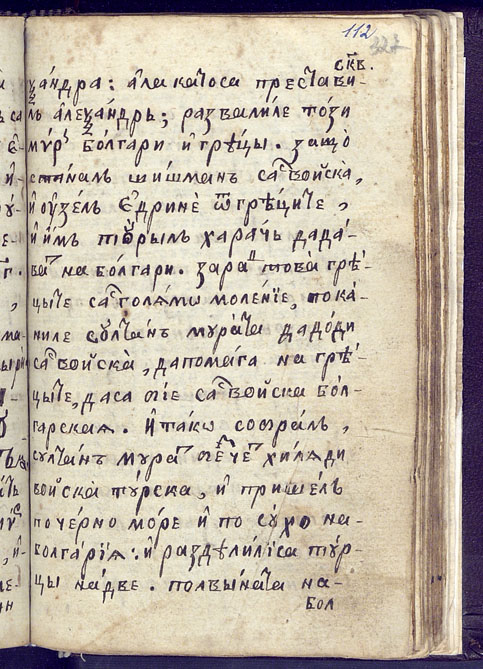 112
327
скв.
ѯандра: ала като са престави-
лъ алеѯандръ; развалиле този
мир болгари и грѣцы. защо
станалъ шишманъ сас войска,
и оузелъ едрине ѿ грѣците,
и имъ тꙋрилъ харачь дада-
ват на болгари. зарат това грѣ-
цыте сас голямо моленїе, пока-
ниле сꙋлтанъ мурата дадоди
сас войска, да помага на грѣ-
цыте, даса бїе сас войска бол-
гарская. и тако собралъ,
султанъ мурат хиляди
войска турска, и пришелъ
по черно море и по сухо на-
болгарїя: и раздѣлилиса тур-
цы на две. полвината на-
бол